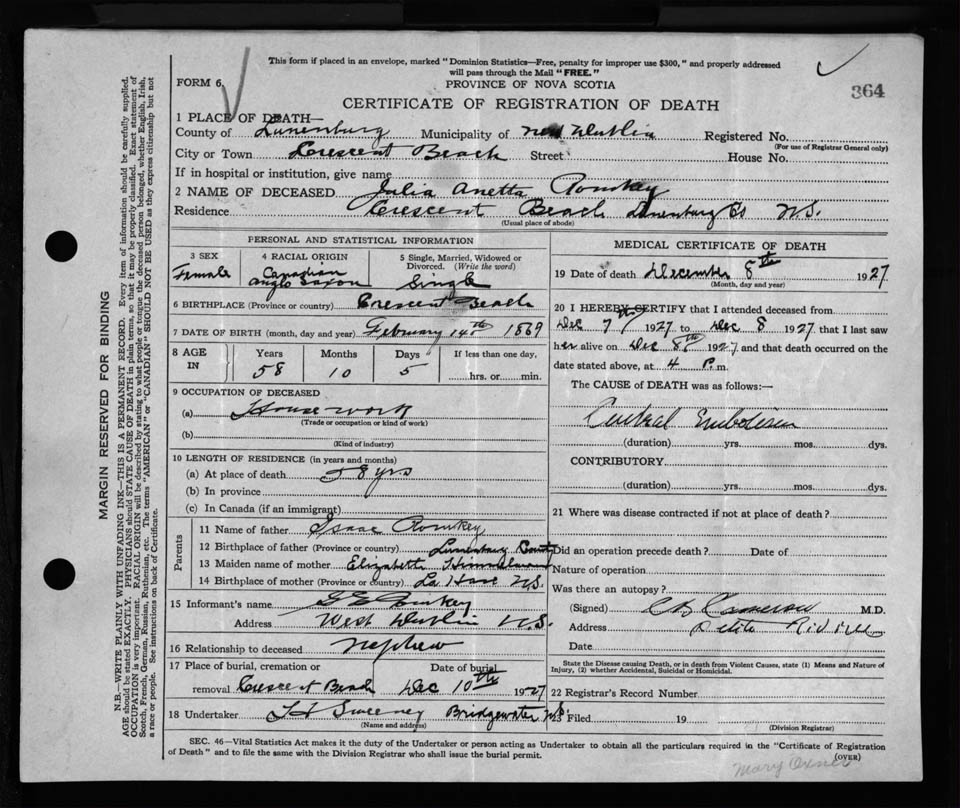 This form if placed in an envelope, marked "Dominion Statistics—Free, penalty for improper use $300," and properly addressed
will pass through the Mail "FREE."
FORM 6
PROVINCE OF NOVA SCOTIA
364
CERTIFICATE OF REGISTRATION OF DEATH
1 PLACE OF DEATH—
County of Lunenburg Municipality of New Dublin Registered No.
(For use of Registrar General only)
City or Town Crescent Beach Street House No.
If in hospital or institution, give name
2 NAME OF DECEASED Julia Anetta Romkey
Residence Crescent Beach Lunenburg Co N.S.
(Usual place of abode)
PERSONAL AND STATISTICAL INFORMATION
3 SEX 4 RACIAL ORIGIN 5 Single, Married, Widowed or Divorced. (Write the word)
Female Canadian Anglo Saxon Single
6 BIRTHPLACE (Province or country) Crescent Beach
7 DATE OF BIRTH (month, day and year) February 14th 1869
8 AGE IN Years Months Days If less than one day,
58 10 5 hrs. or min.
9 OCCUPATION OF DECEASED
(a) House work
(Trade or occupation or kind of work)
(b)
(Kind of industry)
10 LENGTH OF RESIDENCE (in years and months)
(a) At place of death 58 yrs
(b) In province
(c) In Canada (if an immigrant)
Parents
11 Name of father Isaac Romkey
12 Birthplace of father (Province or country) Lunenburg County
13 Maiden name of mother Elizabeth
14 Birthplace of mother (Province or country) La Have N.S.
15 Informant's name Romkey
Address West Dublin N.S.
16 Relationship to deceased nephew
17 Place of burial, cremation or Date of burial
removal Crescent Beach Dec 10th 1927
18 Undertaker Sweeney Bridgewater N.S.
(Name and address)
MEDICAL CERTIFICATE OF DEATH
19 Date of death December 8th 1927
(Month, day and year)
20 I HEREBY CERTIFY that I attended deceased from
Dec 7 1927 to Dec 8 1927 that I last saw
her alive on Dec 8th 1927 and that death occurred on the
date stated above, at 4 P. m.
The CAUSE of DEATH was as follows:—
Embolism
(duration) yrs. mos. dys.
CONTRIBUTORY
(duration) yrs. mos. dys.
21 Where was disease contracted if not at place of death?
Did an operation precede death? Date of
Nature of operation
Was there an autopsy?
(Signed) Cameron M.D.
Address Petite Riviere
Date
State the Disease causing Death, or in death from Violent Causes, state (1) Means and Nature of
Injury, (2) whether Accidental, Suicidal or Homicidal.
22 Registrar's Record Number
23 Filed 19
(Division Registrar)
SEC. 46—Vital Statistics Act makes it the duty of the Undertaker or person acting as Undertaker to obtain all the particulars required in the "Certificate of Registration
of Death" and to file the same with the Division Registrar who shall issue the burial permit.
(OVER)
Mary Oxner
MARGIN RESERVED FOR BINDING
N.B.—WRITE PLAINLY WITH UNFADING INK—THIS IS A PERMANENT RECORD. Every item of information should be carefully supplied.
AGE should be stated EXACTLY. PHYSICIANS should STATE CAUSE OF DEATH in plain terms, so that it may be properly classified. Exact statement of
OCCUPATION is very important. RACIAL ORIGIN will be described by stating to what people or tongue the deceased person belonged, whether English, Irish,
Scotch, French, German, Russian, Ruthenian, etc. The terms "AMERICAN" or "CANADIAN" SHOULD NOT BE USED as they express citizenship but not
a race or people. See instructions on back of Certificate.